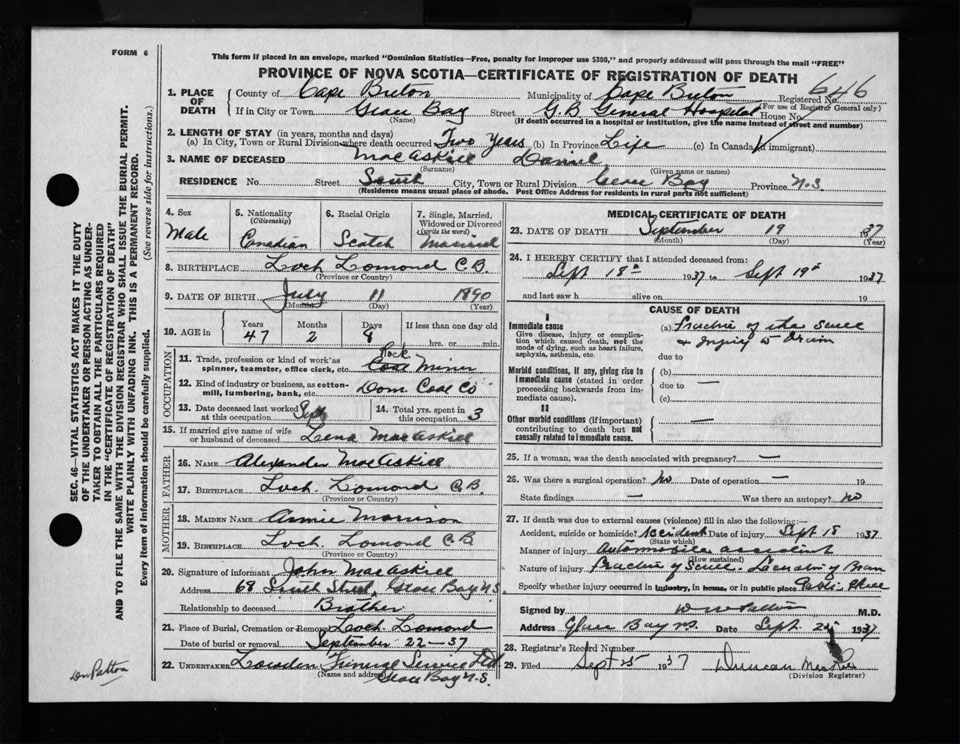 FORM 6
This form if placed in an envelope, marked "Dominion Statistics—Free, penalty for improper use $300," and properly addressed will pass through the mail "FREE"
PROVINCE OF NOVA SCOTIA—CERTIFICATE OF REGISTRATION OF DEATH
646
1. PLACE OF DEATH County of Cape Breton Municipality of Cape Breton Registered No.
(For use of Registrar General only)
If in City or Town Glace Bay Street G.B. General Hospital House No.
(Name) (If death occurred in a hospital or institution, give the name instead of street and number)
2. LENGTH OF STAY (in years, months and days)
(a) In City, Town or Rural Division where death occurred Two Years (b) In Province Life (c) In Canada (if immigrant)
3. NAME OF DECEASED MacAskill Daniel
(Surname) (Given name or names)
RESIDENCE No. Street City, Town or Rural Division Glace Bay Province N.S.
(Residence means usual place of abode. Post Office Address for residents in rural parts not sufficient)
4. Sex Male
5. Nationality (Citizenship) Canadian
6. Racial Origin Scotch
7. Single, Married, Widowed or Divorced (write the word) Married
8. BIRTHPLACE Loch Lomond C.B.
(Province or Country)
9. DATE OF BIRTH July 11 1890
(Month) (Day) (Year)
10. AGE in Years 47 Months 2 Days 8 If less than one day old
hrs. or min.
OCCUPATION
11. Trade, profession or kind of work as spinner, teamster, office clerk, etc. Rock
Coal Miner
12. Kind of industry or business, as cotton-mill, lumbering, bank, etc. Dom Coal Co
13. Date deceased last worked at this occupation Sept
14. Total yrs. spent in this occupation 3
15. If married give name of wife or husband of deceased Lena MacAskill
FATHER
16. NAME Alexander MacAskill
17. BIRTHPLACE Loch Lomond C.B.
(Province or Country)
MOTHER
18. MAIDEN NAME Annie Morrison
19. BIRTHPLACE Loch Lomond C.B.
(Province or Country)
20. Signature of informant John MacAskill
Address 68 Street, Glace Bay N.S.
Relationship to deceased Brother
21. Place of Burial, Cremation or Removal Loch Lomond
Date of burial or removal September 22-37
22. UNDERTAKER Lowden Funeral Service Ltd
(Name and address) Glace Bay N.S.
MEDICAL CERTIFICATE OF DEATH
23. DATE OF DEATH September 19 1937
(Month) (Day) (Year)
24. I HEREBY CERTIFY that I attended deceased from:
Sept 18th 1937 to Sept 19th 1937
and last saw h alive on 19
CAUSE OF DEATH
I
Immediate cause
Give disease, injury or complication which caused death, not the mode of dying, such as heart failure, asphyxia, asthenia, etc.
(a) Fracture of the scull
& Injury to Brain
due to
Morbid conditions, if any, giving rise to immediate cause (stated in order proceeding backwards from immediate cause).
(b) —
due to —
(c)
II
Other morbid conditions (if important) contributing to death but not causally related to immediate cause. —
25. If a woman, was the death associated with pregnancy? —
26. Was there a surgical operation? No Date of operation — 19
State findings — Was there an autopsy? no
27. If death was due to external causes (violence) fill in also the following:—
Accident, suicide or homicide? Accident Date of injury Sept. 18 1937
(State which)
Manner of injury Automobile accident
(How sustained)
Nature of injury Fracture of Scull. Laceration of Brain
Specify whether injury occurred in industry, in home, or in public place Public Place
Signed by M.D.
Address Glace Bay N.S. Date Sept. 1937
28. Registrar's Record Number
29. Filed Sept 25 1937 Duncan
(Division Registrar)
SEC. 46—VITAL STATISTICS ACT MAKES IT THE DUTY
OF THE UNDERTAKER OR PERSON ACTING AS UNDER-
TAKER TO OBTAIN ALL THE PARTICULARS REQUIRED
IN THE "CERTIFICATE OF REGISTRATION OF DEATH"
AND TO FILE THE SAME WITH THE DIVISION REGISTRAR WHO SHALL ISSUE THE BURIAL PERMIT.
WRITE PLAINLY WITH UNFADING INK. THIS IS A PERMANENT RECORD.
Every item of information should be carefully supplied. (See reverse side for instructions.)
Patton